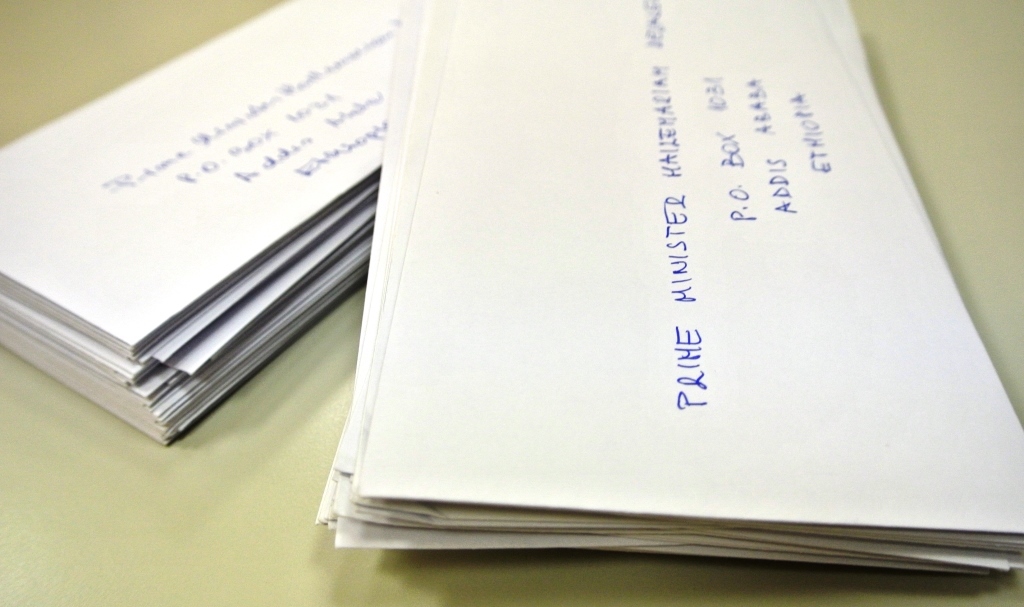 Prime Minister Hailemariam
P.O. BOX 1031
Addis Ababa
Ethiopia
PRIME MINISTER HAILEMARIAM
P.O. BOX 1031
ADDIS ABABA
ETHIOPIA